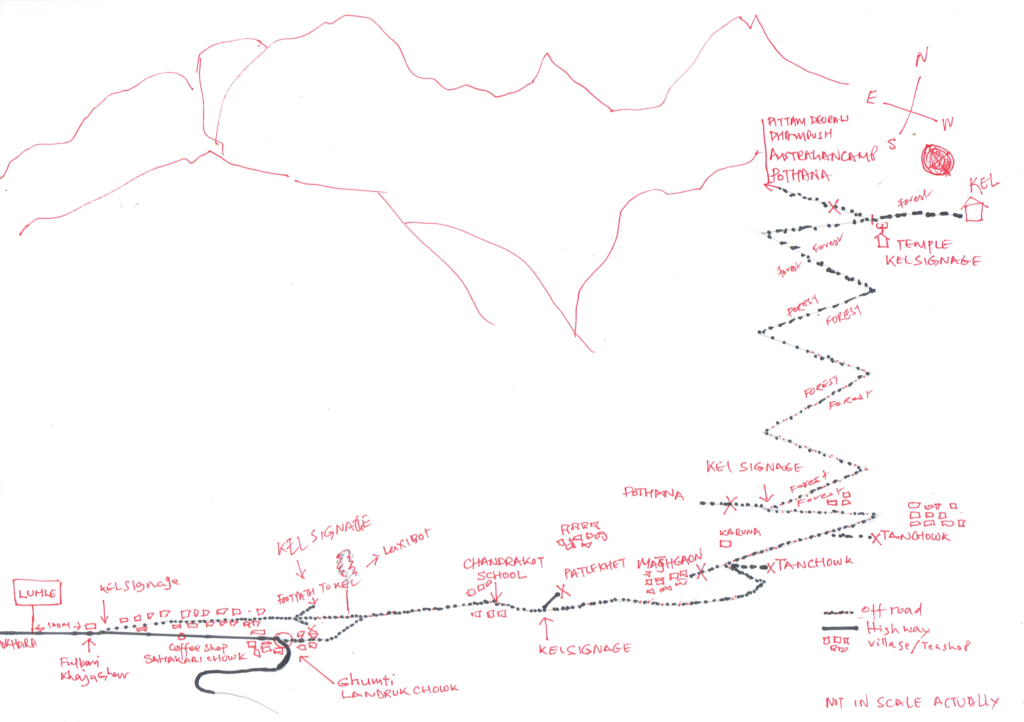 N
E
W
S
PITTAM DEURALI
DHAMPUSH
AUSTRALIANCAMP
POTHANA
KEL
Forest
TEMPLE
KELSIGNAGE
Forest
Forest
FOREST
FOREST
FOREST
FOREST
KEL SIGNAGE
Forest
Forest
POTHANA
X
KARUNA
X TANCHOWK
X TANCHOWK
KEL SIGNAGE
LAXIBOT
FOOTPATH TO KEL
CHANDRAKOT
SCHOOL
PATLEKHET
MAJHGAON
KELSIGNAGE
LUMLE
KELSIGNAGE
100M
Fulbari
Khajaghar
Coffee shop
SAHAKARI CHOWK
Ghumti
LANDRUK CHOWK
off road
High way
village/Teashop
NOT IN SCALE ACTUALLY